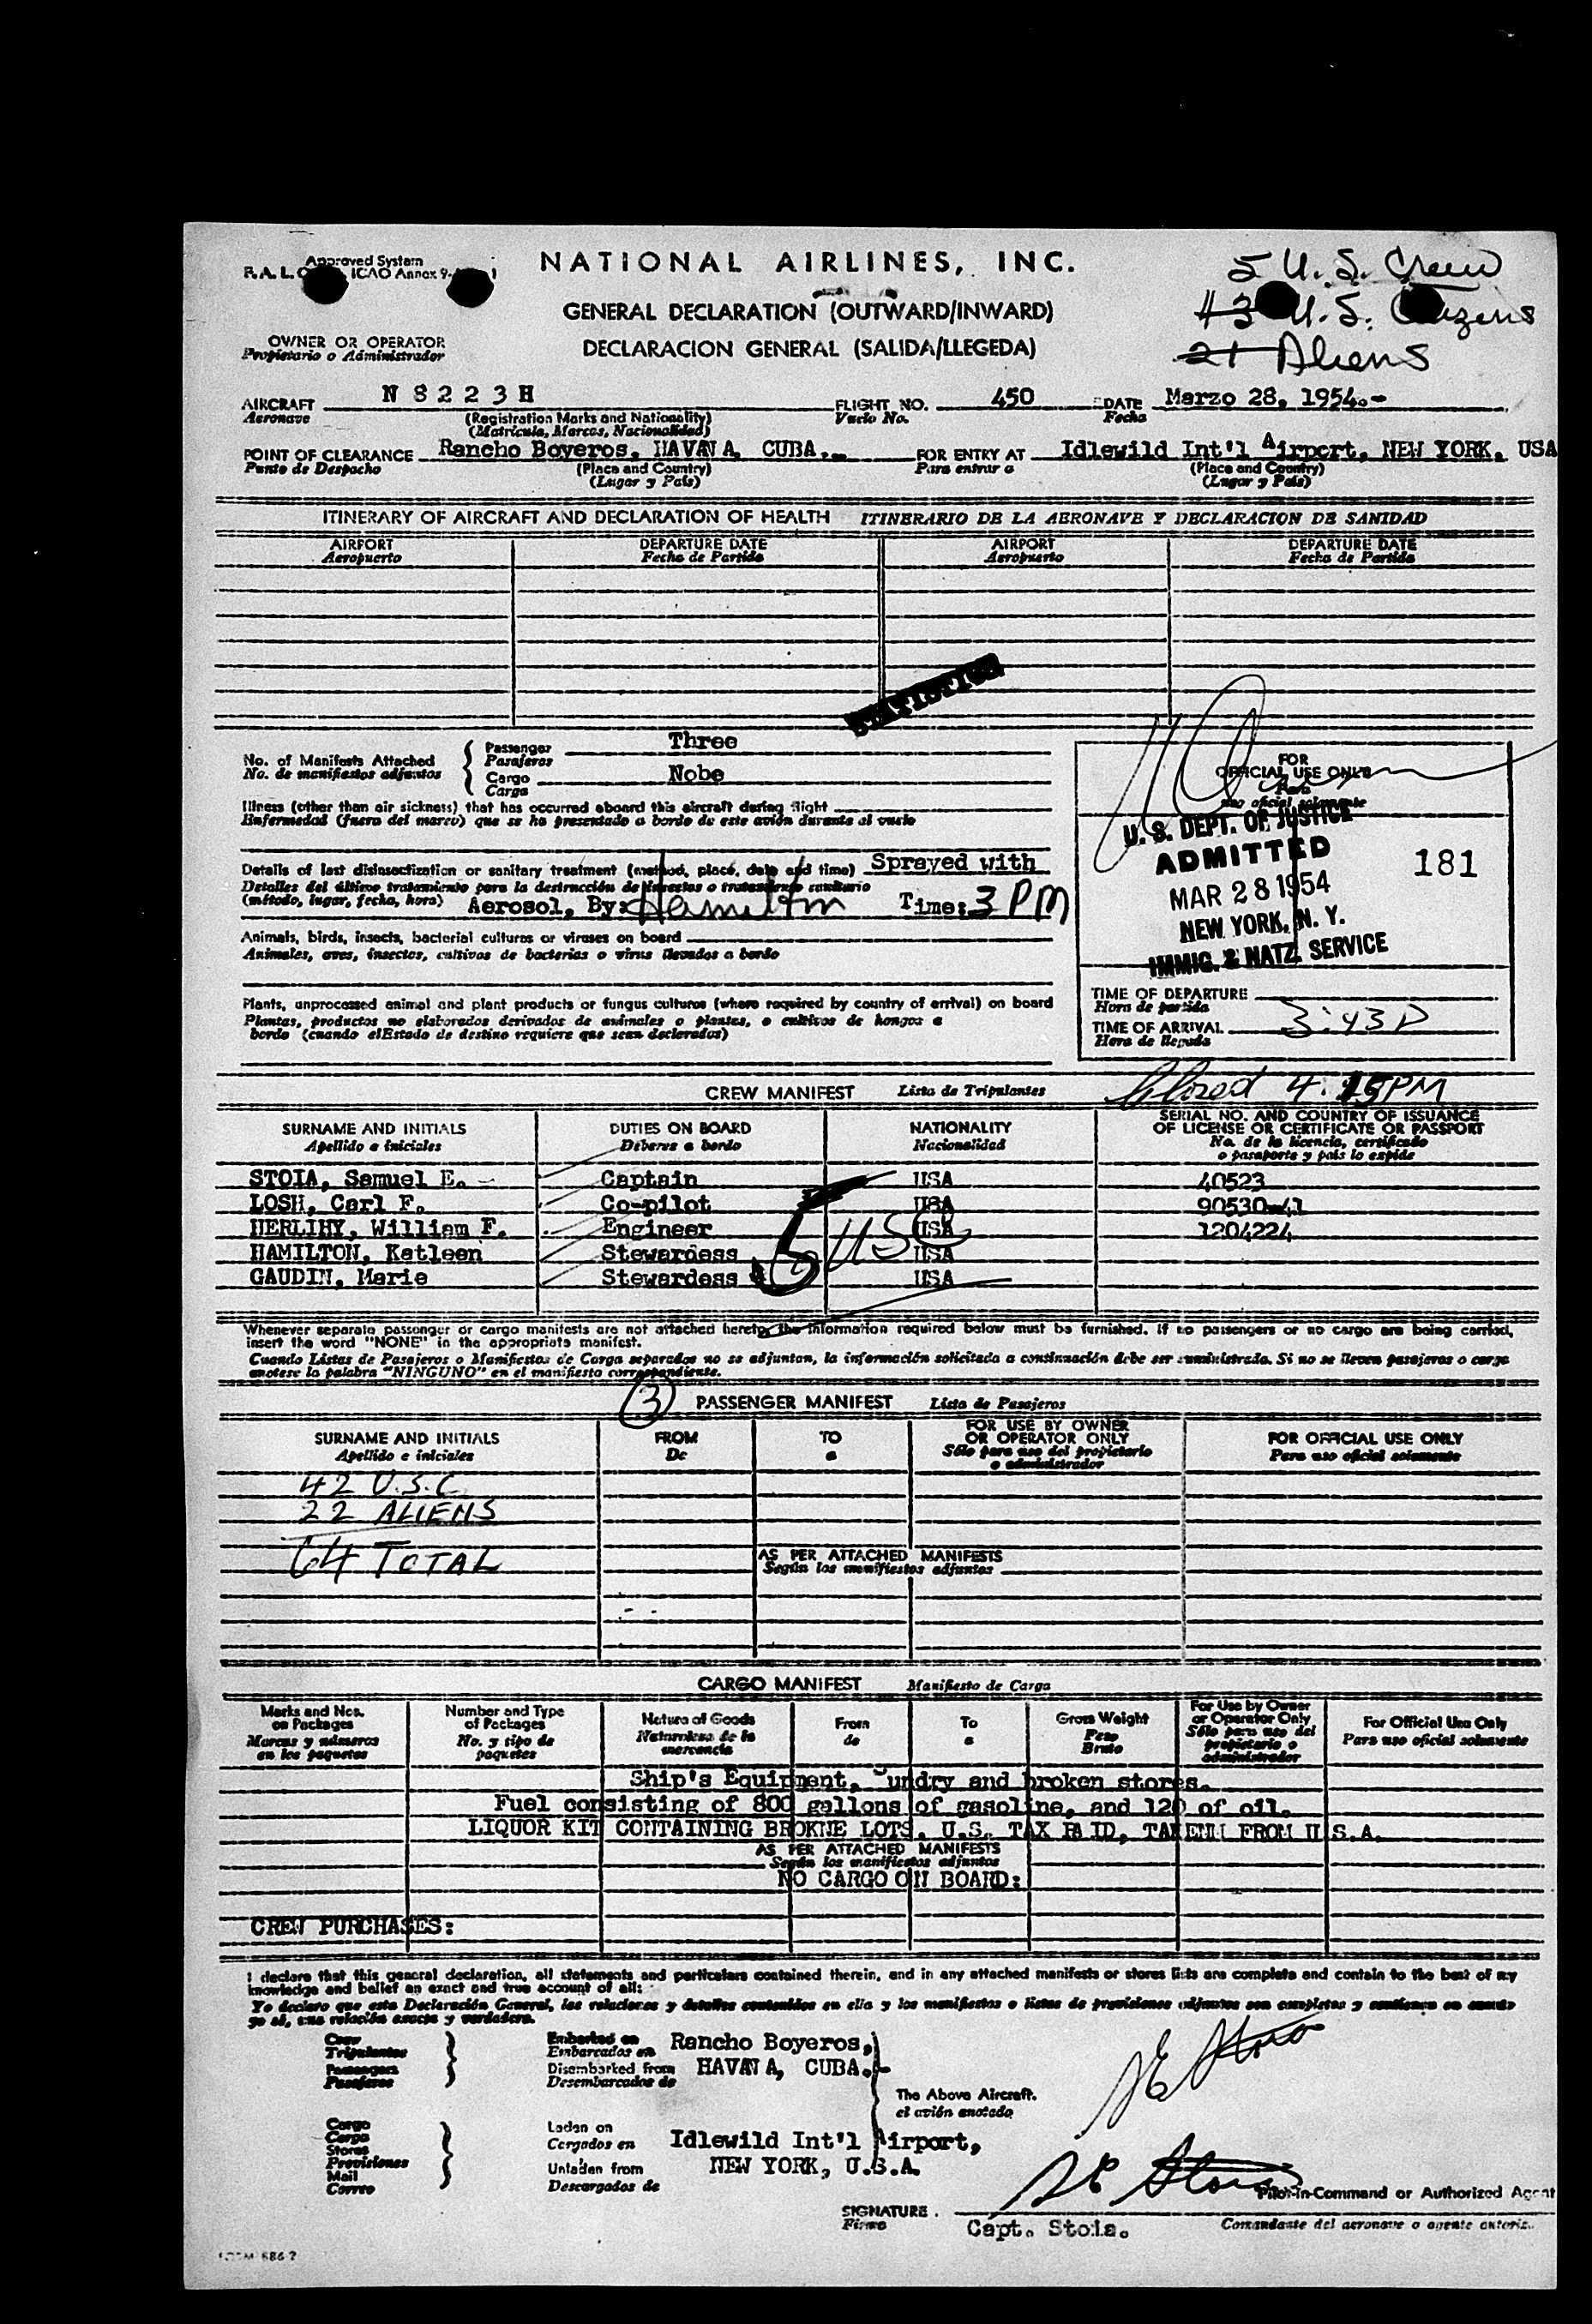 Approved System
F.A.L. ICAO Annex 9-
NATIONAL AIRLINES, INC.
5 U.S. Crew
GENERAL DECLARATION (OUTWARD/INWARD)
43 U.S. Citizens
OWNER OR OPERATOR
Propietario o Administrador
DECLARACION GENERAL (SALIDA/LLEGEDA)
21 Aliens
AIRCRAFT N 8 2 2 3 H FLIGHT NO. 450 DATE Marzo 28, 1954.-
Aeronave (Registration Marks and Nationality) Vuelo No. Fecha
(Matricula, Marcas, Nacionalidad)
POINT OF CLEARANCE Rancho Boyeros, HAVANA, CUBA.- FOR ENTRY AT Idlewild Int'l Airport, NEW YORK, USA
Punto de Despacho (Place and Country) Para entrar a (Place and Country)
(Lugar y País) (Lugar y País)
ITINERARY OF AIRCRAFT AND DECLARATION OF HEALTH ITINERARIO DE LA AERONAVE Y DECLARACION DE SANIDAD
AIRPORT DEPARTURE DATE AIRPORT DEPARTURE DATE
Aeropuerto Fecha de Partida Aeropuerto Fecha de Partida
STATISTICS
No. of Manifests Attached Passenger Three
No. de manifiestos adjuntos Pasajeros
Cargo Nobe
Carga
FOR
OFFICIAL USE ONLY
Para
uso oficial solamente
Illness (other than air sickness) that has occurred aboard this aircraft during flight
Enfermedad (fuera del mareo) que se ha presentado a bordo de este avión durante el vuelo
U. S. DEPT. OF JUSTICE
ADMITTED
181
MAR 28 1954
NEW YORK, N. Y.
IMMIG. & NATZ. SERVICE
Details of last disinsectization or sanitary treatment (method, place, date and time) Sprayed with
Detalles del último tratamiento para la destrucción de insectos o tratamiento sanitario
(método, lugar, fecha, hora) Aerosol, By: Hamilton Time: 3 PM
Animals, birds, insects, bacterial cultures or viruses on board
Animales, aves, insectos, cultivos de bacterias o virus llevados a bordo
Plants, unprocessed animal and plant products or fungus cultures (where required by country of arrival) on board
Plantas, productos no elaborados derivados de animales o plantas, o cultivos de hongos a
bordo (cuando elEstado de destino requiere que sean declarados)
TIME OF DEPARTURE
Hora de partida
TIME OF ARRIVAL 3:43P
Hora de llegada
CREW MANIFEST Lista de Tripulantes
Closed 4:15PM
SURNAME AND INITIALS DUTIES ON BOARD NATIONALITY SERIAL NO. AND COUNTRY OF ISSUANCE
OF LICENSE OR CERTIFICATE OR PASSPORT
Apellido e iniciales Deberes a bordo Nacionalidad No. de la licencia, certificado
o pasaporte y país lo expide
STOIA, Samuel E. Captain USA 40523
LOSH, Carl F. Co-pilot USA 90530-41
HERLIHY, William F. Engineer USA 1204224
HAMILTON, Katleen Stewardess USA
GAUDIN, Marie Stewardess USA
5 USC
Whenever separate passenger or cargo manifests are not attached hereto, the information required below must be furnished. If no passengers or no cargo are being carried,
insert the word "NONE" in the appropriate manifest.
Cuando Listas de Pasajeros o Manifiestos de Carga separados no se adjuntan, la información solicitada a continuación debe ser suministrada. Si no se lleven pasajeros o carga
anotese la palabra "NINGUNO" en el manifiesto correspondiente.
3 PASSENGER MANIFEST Lista de Pasajeros
SURNAME AND INITIALS FROM TO FOR USE BY OWNER
OR OPERATOR ONLY FOR OFFICIAL USE ONLY
Apellido e iniciales De a Sólo para uso del propietario
o administrador Para uso oficial solamente
42 U.S.C.
22 ALIENS
64 TOTAL
AS PER ATTACHED MANIFESTS
Según los manifiestos adjuntos
CARGO MANIFEST Manifiesto de Carga
Marks and Nos.
on Packages
Marcas y números
en los paquetes
Number and Type
of Packages
No. y tipo de
paquetes
Nature of Goods
Naturaleza de la
mercancía
From
de
To
a
Gross Weight
Peso
Bruto
For Use by Owner
or Operator Only
Sólo para uso del
propietario o
administrador
For Official Use Only
Para uso oficial solamente
Ship's Equipment, undry and broken stores.
Fuel consisting of 800 gallons of gasoline, and 120 of oil.
LIQUOR KIT CONTAINING BROKNE LOTS, U.S. TAX PAID, TAKENN FROM U.S.A.
AS PER ATTACHED MANIFESTS
Según los manifiestos adjuntos
NO CARGO ON BOARD:
CREW PURCHASES:
I declare that this general declaration, all statements and particulars contained therein, and in any attached manifests or stores lists are complete and contain to the best of my
knowledge and belief an exact and true account of all:
Yo declaro que esta Declaración General, las relaciones y detalles contenidos en ella y los manifiestos o listas de provisiones adjuntos son completas y contienen en cuanto
yo sé, una relación exacta y verdadera.
Crew
Tripulantes
Passengers
Pasajeros
Embarked on Rancho Boyeros,
Embarcados en
Disembarked from HAVANA, CUBA.-
Desembarcados de
The Above Aircraft.
el avión anotado
Cargo
Carga
Stores
Provisiones
Mail
Correo
Laden on
Cargados en Idlewild Int'l Airport,
Unladen from NEW YORK, U.S.A.
Descargados de
SE Stoia
SE Stoia
Pilot-in-Command or Authorized Agent
SIGNATURE
Firma Capt. Stoia. Comandante del aeronave o agente autoriz..
FORM 686-2